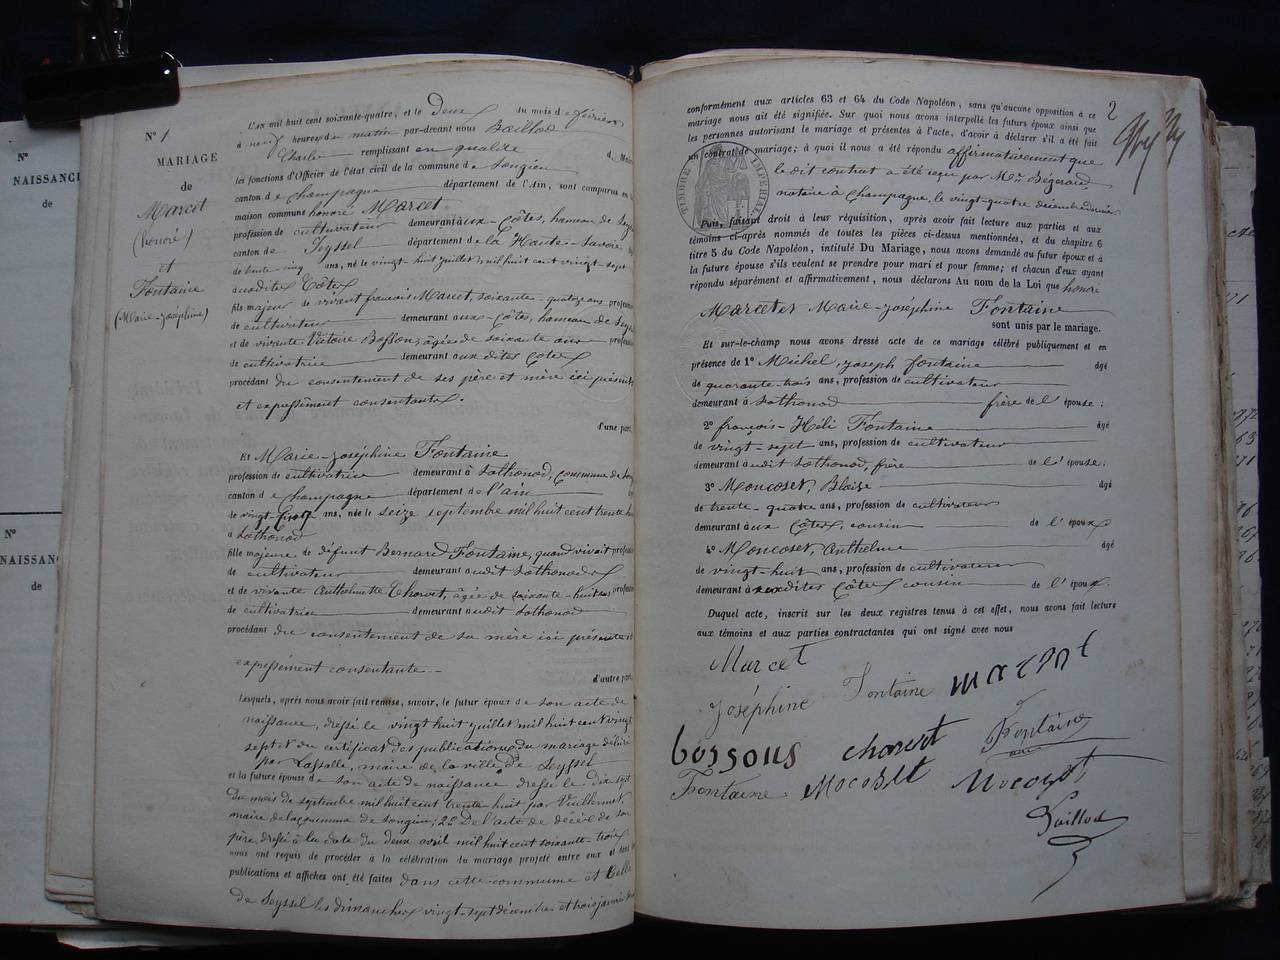 N°
NAISSANC
de
N°
NAISSAN
de
N° 1
MARIAGE
de
Marcet
(honoré)
et
Fontaine
(Marie-Joséphine)
L'an mil huit cent soixante-quatre, et le Deux du mois de février
à neuf heures du matin par-devant nous Baillod
Charles remplissant en qualité de Maire
les fonctions d'Officier de l'état civil de la commune de Songieu
canton de Champagne département de l'Ain, sont comparus en la
maison commune honoré Marcet
profession de cultivateur demeurant aux Côtes, hameau de Seyssel
canton de Seyssel département de la Haute-Savoie
ans, né le vingt-huit juillet mil huit cent vingt-sept
auxdites Côtes
fils majeur de vivant françois Marcet, soixante-quatorze ans profession
de cultivateur demeurant aux Côtes, hameau de Seyssel
et de vivante Victoire Bosson, âgée de soixante ans profession
de cultivatrice demeurant aux dites Côtes
procédant du consentement de ses père et mère ici présents
et expressément consentants.
d'une part
Et Marie-Joséphine Fontaine
profession de cultivatrice demeurant à Lothonod, commune de Songieu
canton de Champagne département de l'ain
de vingt-cinq ans, née le seize septembre mil huit cent trente huit
à Lothonod
fille majeure de défunt Bernard Fontaine, quand vivait profession
de cultivateur demeurant audit Lothonod
et de vivante Anthelmette Charvet, âgée de soixante-huit ans profession
de cultivatrice demeurant audit Lothonod
procédant du consentement de sa mère ici présente et
expressément consentante
d'autre part
Lesquels, après nous avoir fait remise, savoir, le futur époux de son acte de
naissance, dressé le vingt huit juillet mil huit cent vingt
sept et du certificat des publications du mariage délivré
par Lassalle, maire de la ville de Seyssel
et la future épouse de son acte de naissance dressé le dix sept
du mois de septembre mil huit cent trente huit par Vuillermet,
maire de la commune de Songieu; 2° De l'acte de décès de son
père, dressé à la date du deux avril mil huit cent soixante-trois
nous ont requis de procéder à la célébration du mariage projeté entre eux et dont les
publications et affiches ont été faites dans cette commune et Celle
de Seyssel les dimanches vingt-sept décembre et trois janvier
2
conformément aux articles 63 et 64 du Code Napoléon, sans qu'aucune opposition à ce
mariage nous ait été signifiée. Sur quoi nous avons interpellé les futurs époux ainsi que
les personnes autorisant le mariage et présentes à l'acte, d'avoir à déclarer s'il a été fait
un contrat de mariage; à quoi il nous a été répondu affirmativement que
le dit contrat a été reçu par Me Bégerard
notaire à Champagne, le vingt-quatre décembre dernier
TIMBRE IMPÉRIAL
Puis, faisant droit à leur réquisition, après avoir fait lecture aux parties et aux
témoins ci-après nommés de toutes les pièces ci-dessus mentionnées, et du chapitre 6
titre 5 du Code Napoléon, intitulé Du Mariage, nous avons demandé au futur époux et à
la future épouse s'ils veulent se prendre pour mari et pour femme; et chacun d'eux ayant
répondu séparément et affirmativement, nous déclarons Au nom de la Loi que honoré
Marcet et Marie-Joséphine Fontaine
sont unis par le mariage.
Et sur-le-champ nous avons dressé acte de ce mariage célébré publiquement et en
présence de 1° Michel, Joseph fontaine âgé
de quarante-trois ans, profession de cultivateur
demeurant à Lothonod frère de l'épouse;
2° françois-Héli Fontaine âgé
de vingt-sept ans, profession de cultivateur
demeurant audit Lothonod, frère de l'épouse;
3° Moncoset, Blaise âgé
de trente-quatre ans, profession de cultivateur
demeurant aux Côtes, cousin de l'époux
4° Moncoset, Anthelme âgé
de vingt-huit ans, profession de cultivateur
demeurant auxdites Côtes cousin de l'époux.
Duquel acte, inscrit sur les deux registres tenus à cet effet, nous avons fait lecture
aux témoins et aux parties contractantes qui ont signé avec nous
Marcet
Joséphine Fontaine marcet
bossons charvet Fontaine
Fontaine Mocoset Mocozet
Baillod